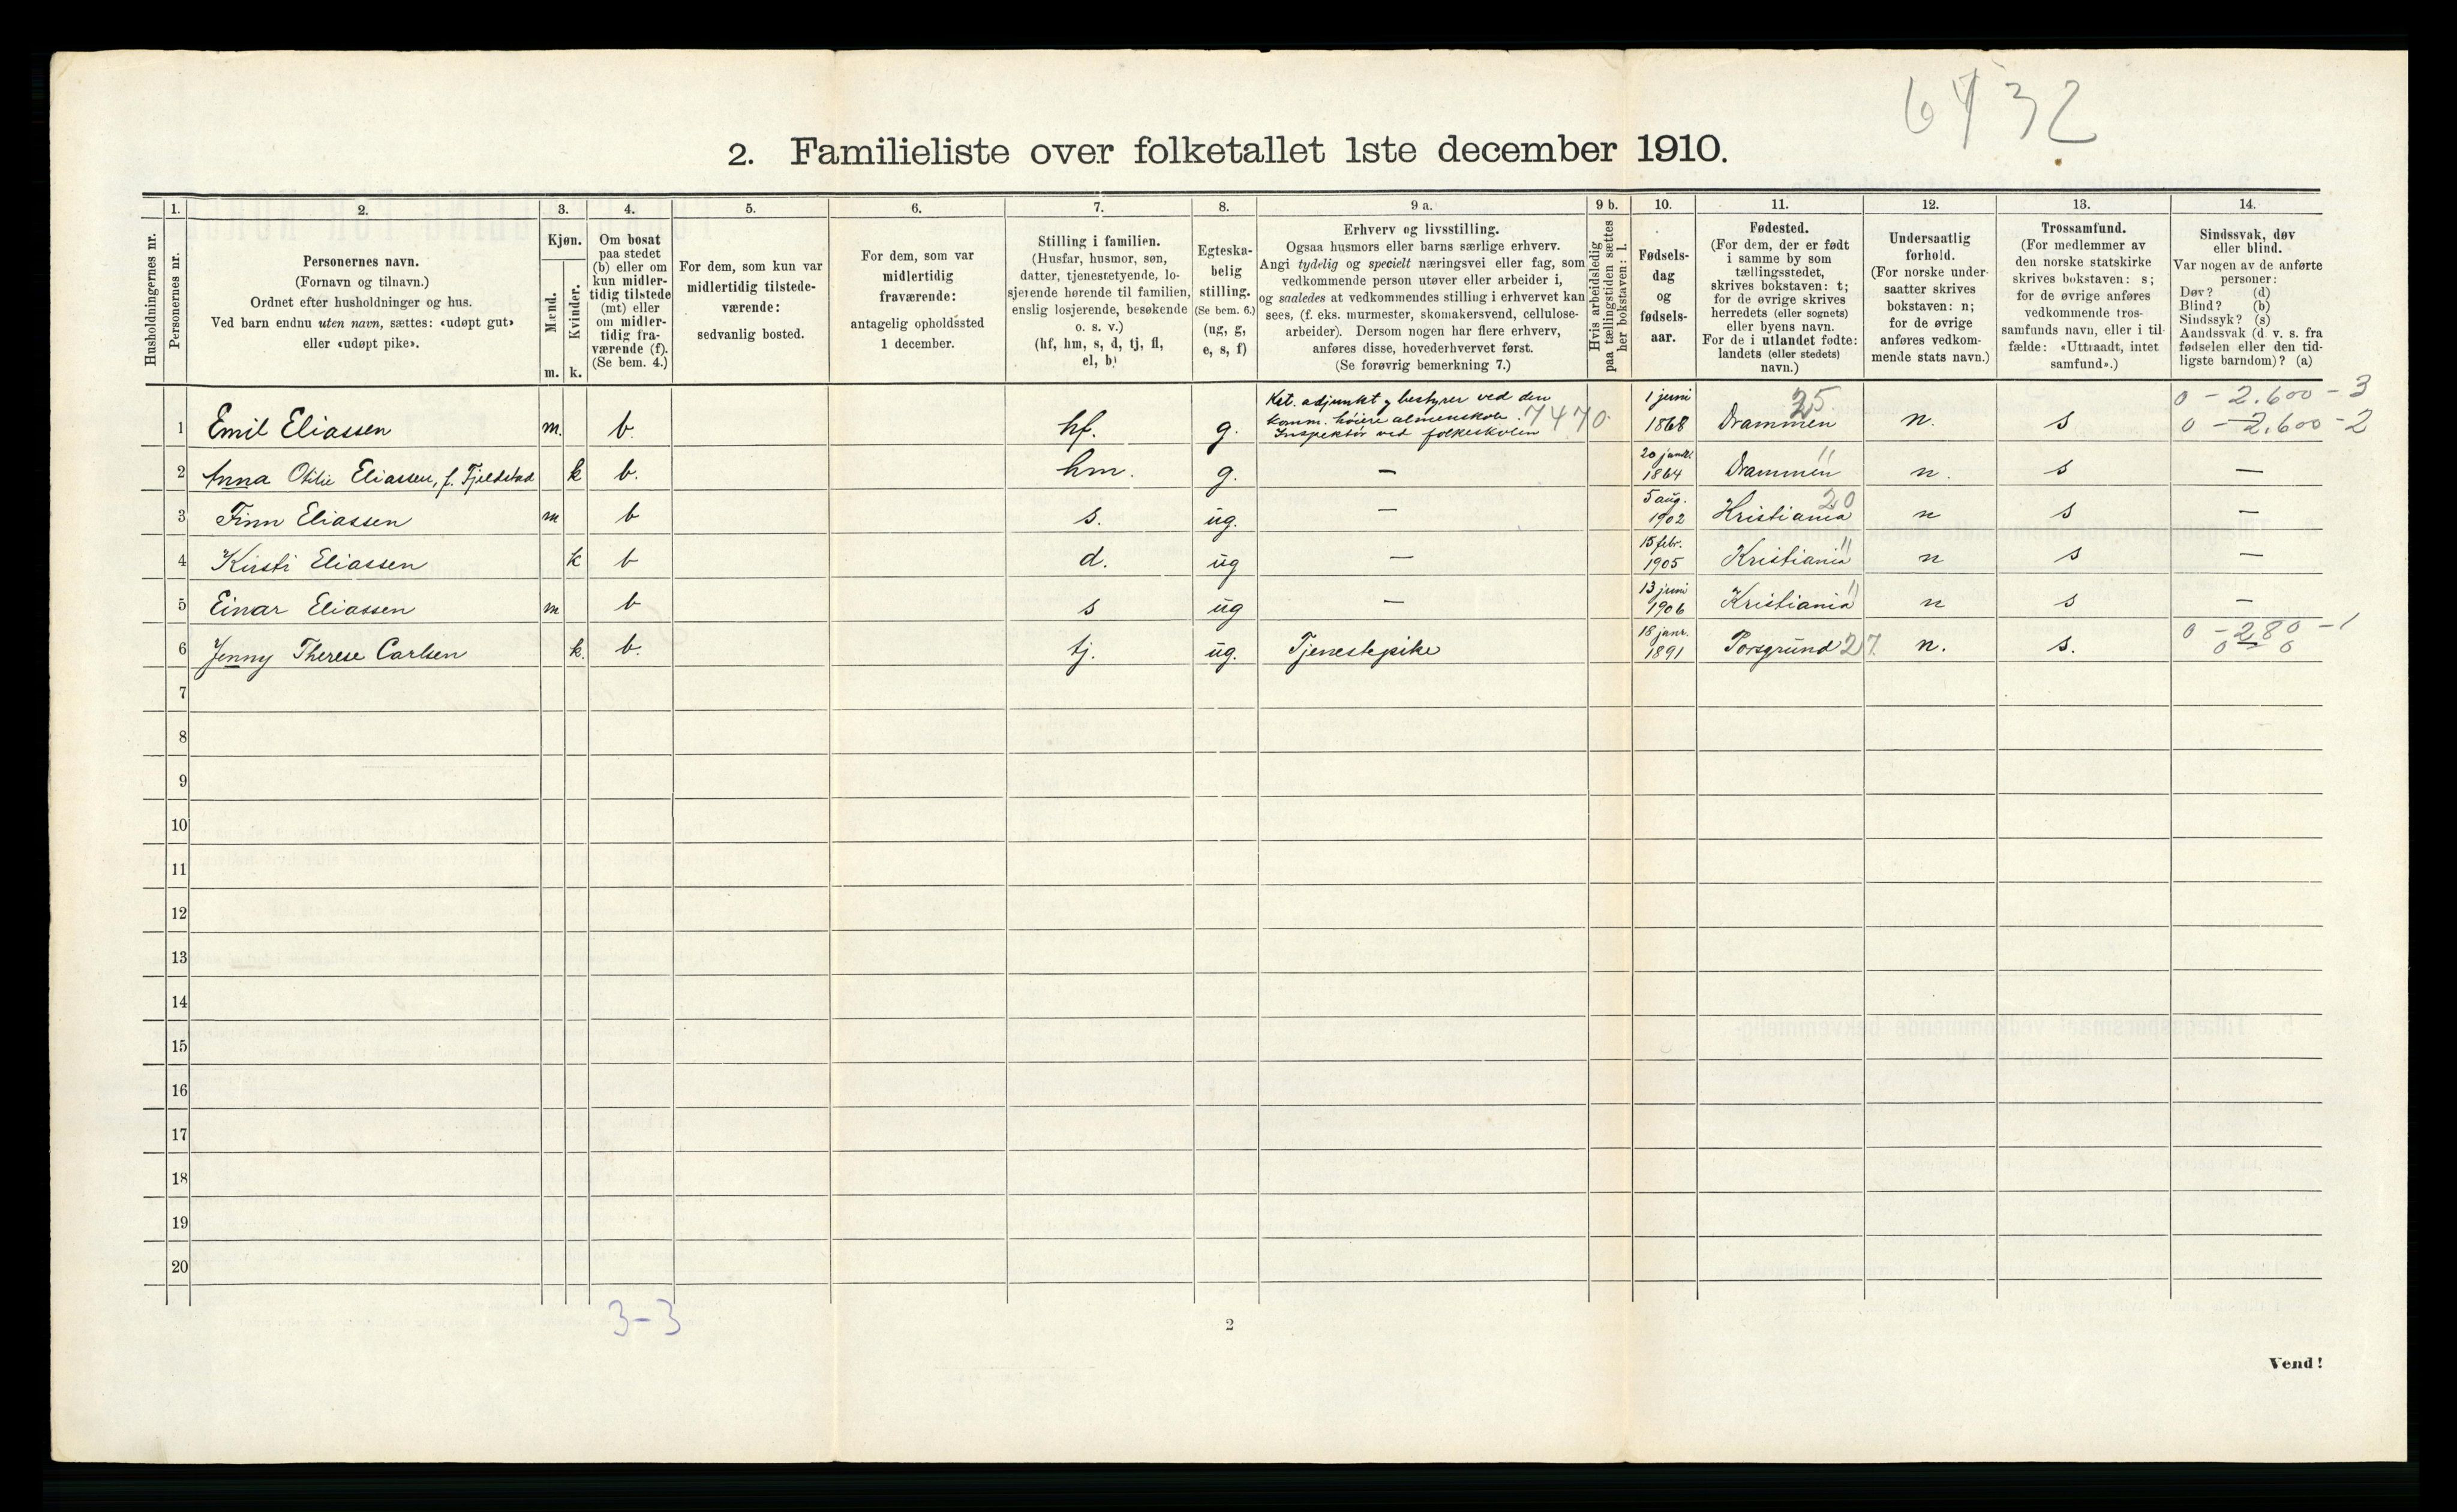 6432
2. Familieliste over folketallet 1ste december 1910.
Husholdningernes nr.
1.
Personernes nr.
2.
Personernes navn.
(Fornavn og tilnavn.)
Ordnet efter husholdninger og hus.
Ved barn endnu uten navn, sættes: «udøpt gut»
eller «udøpt pike».
3.
Kjøn.
Mænd.
Kvinder.
m. k.
4.
Om bosat
paa stedet
(b) eller om
kun midler-
tidig tilstede
(mt) eller
om midler-
tidig fra-
værende (f).
(Se bem. 4.)
5.
For dem, som kun var
midlertidig tilstede-
værende:
sedvanlig bosted.
6.
For dem, som var
midlertidig
fraværende:
antagelig opholdssted
1 december.
7.
Stilling i familien.
(Husfar, husmor, søn,
datter, tjenestetyende, lo-
sjerende hørende til familien,
enslig losjerende, besøkende
o. s. v.)
(hf, hm, s, d, tj, fl,
el, b)
8.
Egteska-
belig
stilling.
(Se bem. 6.)
(ug, g,
e, s, f)
9 a.
Erhverv og livsstilling.
Ogsaa husmors eller barns særlige erhverv.
Angi tydelig og specielt næringsvei eller fag, som
vedkommende person utøver eller arbeider i,
og saaledes at vedkommendes stilling i erhvervet kan
sees, (f. eks. murmester, skomakersvend, cellulose-
arbeider). Dersom nogen har flere erhverv,
anføres disse, hovederhvervet først.
(Se forøvrig bemerkning 7.)
9 b.
Hvis arbeidsledig
paa tællingstiden sættes
her bokstaven: l.
10.
Fødsels-
dag
og
fødsels-
aar.
11.
Fødested.
(For dem, der er født
i samme by som
tællingsstedet,
skrives bokstaven: t;
for de øvrige skrives
herredets (eller sognets)
eller byens navn.
For de i utlandet fødte:
landets (eller stedets)
navn.)
12.
Undersaatlig
forhold.
(For norske under-
saatter skrives
bokstaven: n;
for de øvrige
anføres vedkom-
mende stats navn.)
13.
Trossamfund.
(For medlemmer av
den norske statskirke
skrives bokstaven: s;
for de øvrige anføres
vedkommende tros-
samfunds navn, eller i til-
fælde: «Uttraadt, intet
samfund».)
14.
Sindssvak, døv
eller blind.
Var nogen av de anførte
personer:
Døv? (d)
Blind? (b)
Sindssyk? (s)
Aandssvak (d. v. s. fra
fødselen eller den tid-
ligste barndom)? (a)
Kst. adjunkt og bestyrer ved den
komm. høiere almenskole. 7470
Inspektør ved folkeskolen
1 Emil Eliassen m. b. hf. g. 1 juni 1868 Drammen 25 n. s 0 - 2.600 - 3
0 - 2.600 - 2
2 Anna Otilie Eliassen, f. Fjeldstad k b. hm. g. — 20 januar 1864 Drammen " n. s —
3 Finn Eliassen m b s. ug. — 5 aug. 1902 Kristiania 20 n s —
4 Kirsti Eliassen k b d. ug — 15 febr. 1905 Kristiania " n s —
5 Einar Eliassen m b s ug — 13 juni 1906 Kristiania " n s —
6 Jenny Therese Carlsen k. b. tj. ug. Tjenestepike 18 janr. 1891 Porsgrund 27. n. s. 0 - 280 - 1
0 0
7
8
9
10
11
12
13
14
15
16
17
18
19
20
3-3
2
Vend!